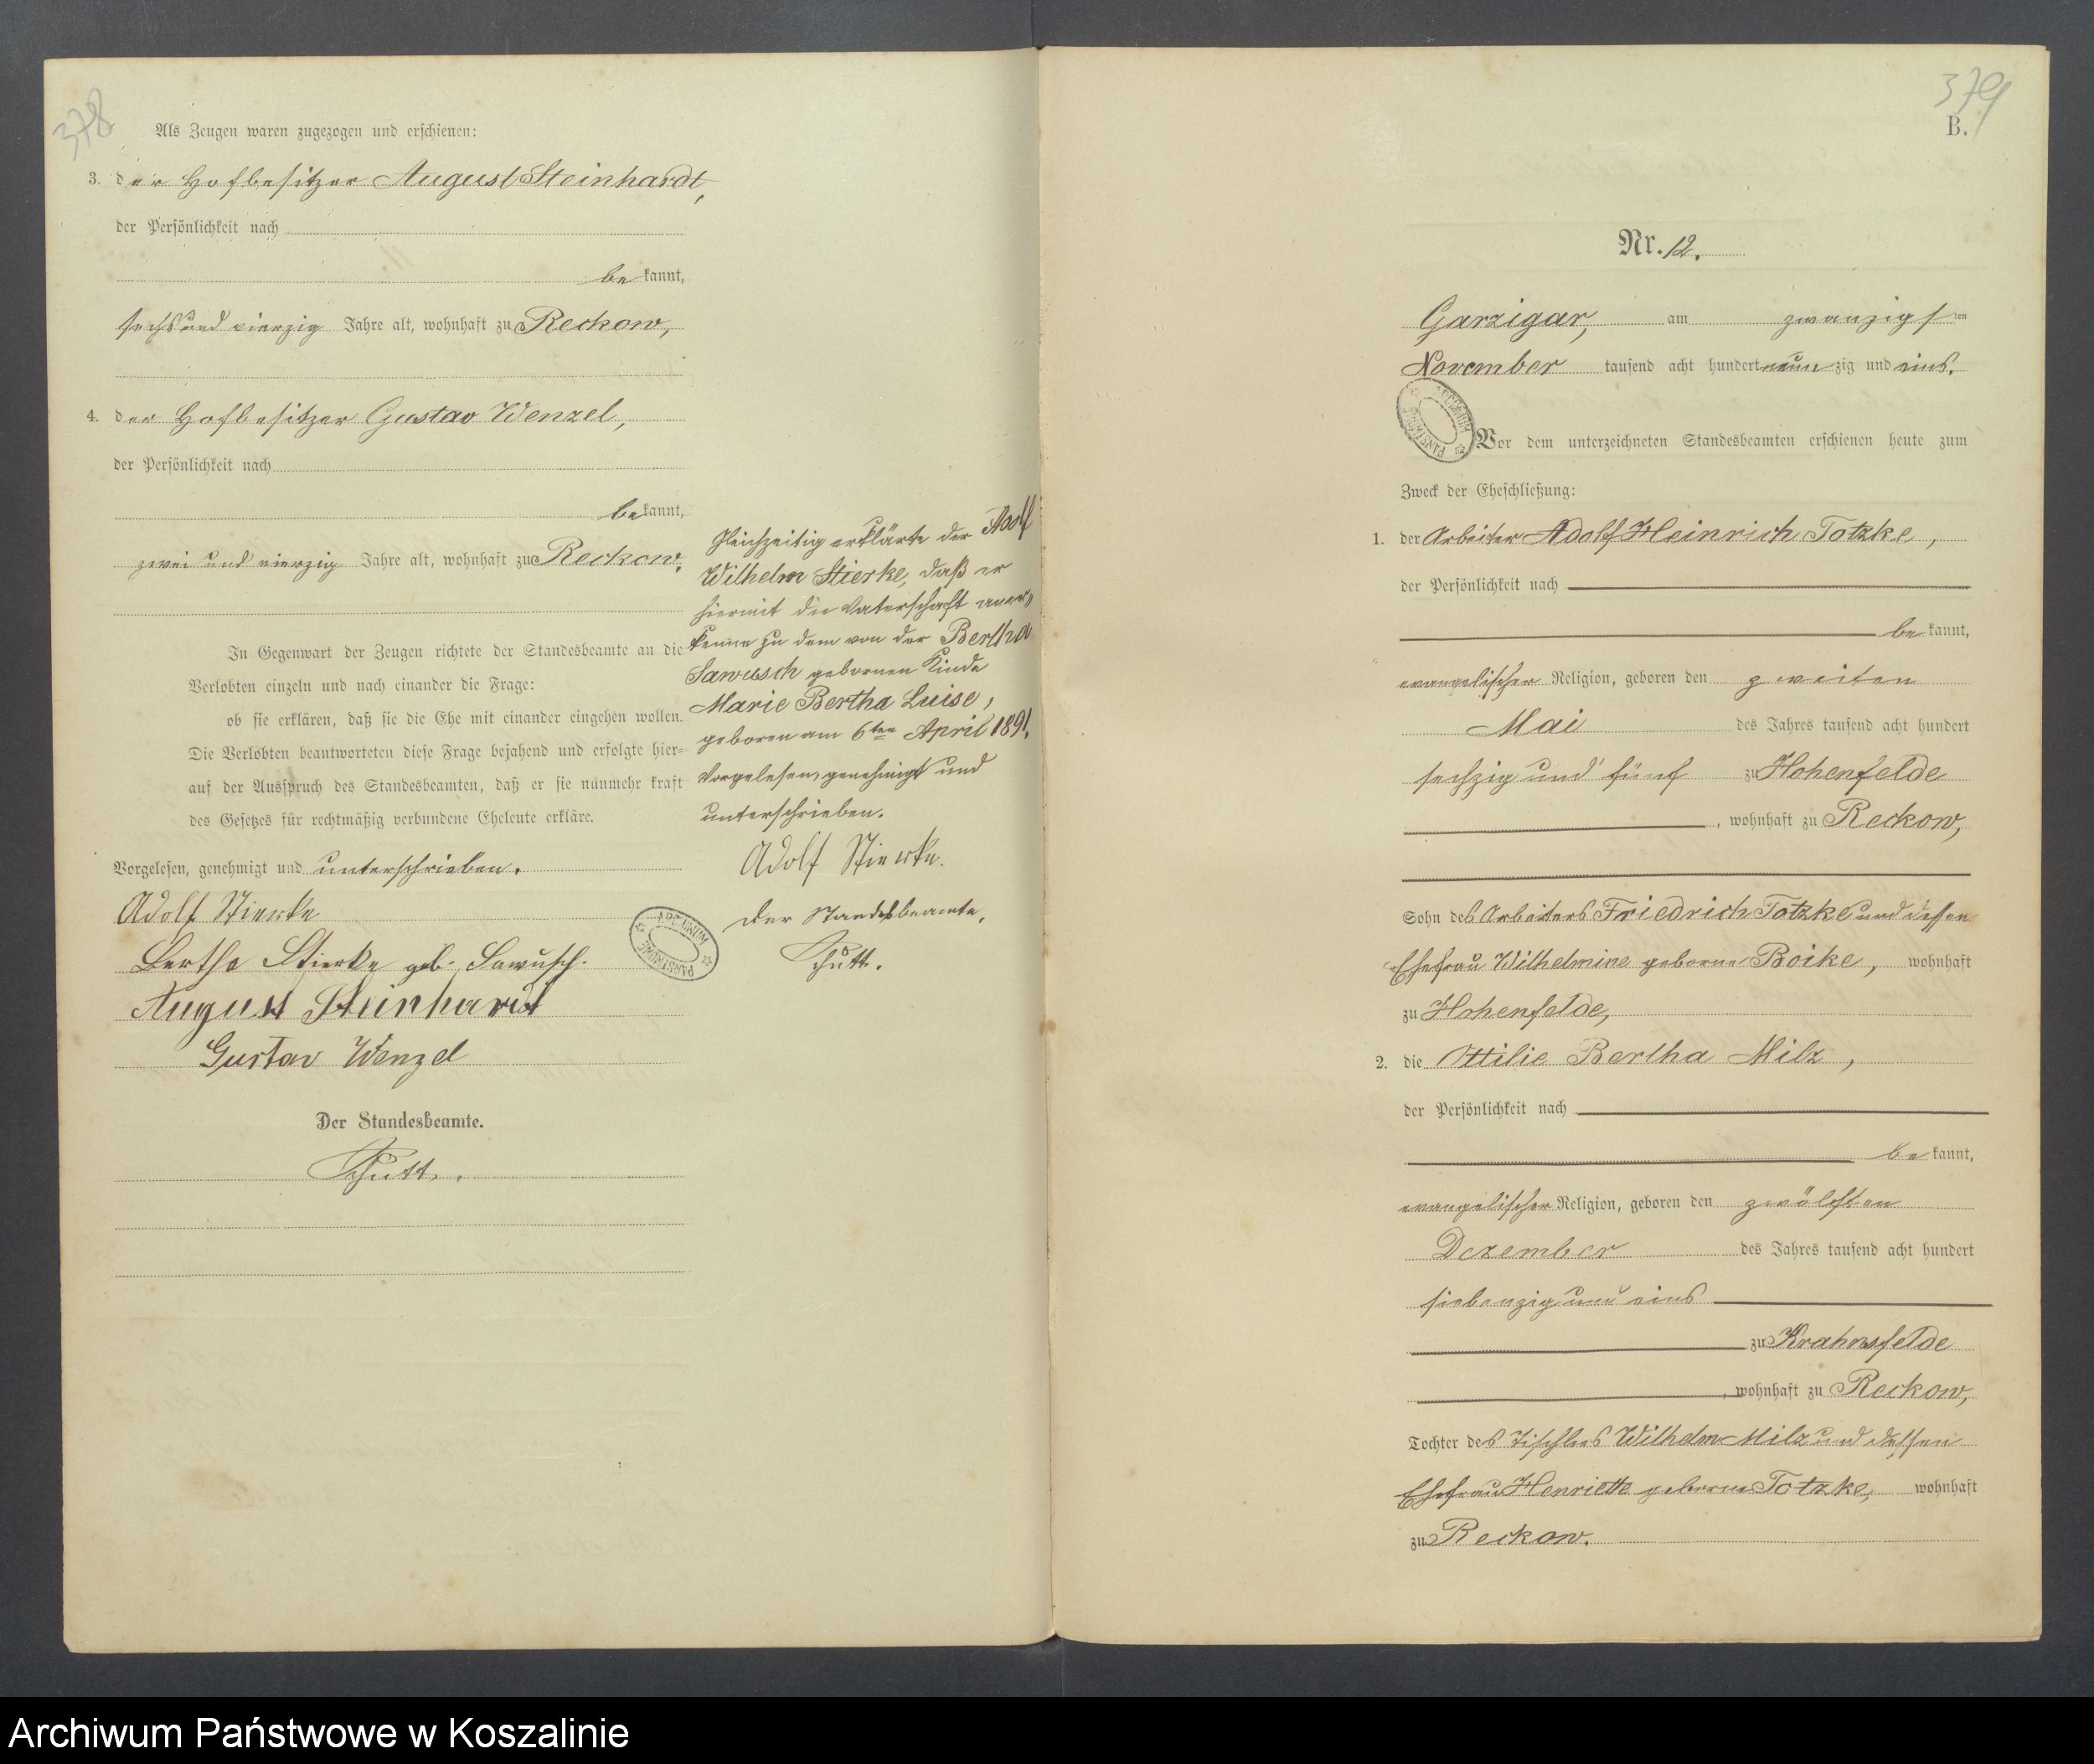 378
Als Zeugen waren zugezogen und erschienen:
3. der Hofbesitzer August Steinhardt,
der Persönlichkeit nach
be kannt,
sechs und vierzig Jahre alt, wohnhaft zu Reckow,
4. der Hofbesitzer Gustav Wenzel,
der Persönlichkeit nach
be kannt,
zwei und vierzig Jahre alt, wohnhaft zu Reckow.
In Gegenwart der Zeugen richtete der Standesbeamte an die
Verlobten einzeln und nach einander die Frage:
ob sie erklären, daß sie die Ehe mit einander eingehen wollen.
Die Verlobten beantworteten diese Frage bejahend und erfolgte hier-
auf der Ausspruch des Standesbeamten, daß er sie nunmehr kraft
des Gesetzes für rechtmäßig verbundene Eheleute erkläre.
Vorgelesen, genehmigt und unterschrieben.
Adolf Stierke
Bertha Stierke geb. Sawusch.
August Steinhardt
Gustav Wenzel
Der Standesbeamte.
Schutt.
Gleichzeitig erklärte der Adolf
Wilhelm Stierke, daß er
hiermit die Vaterschaft aner-
kenne zu dem von der Bertha
Sawusch gebornen Kinde
Marie Bertha Luise,
geboren am 6ten April 1891.
Vorgelesen, genehmigt und
unterschrieben.
Adolf Stierke.
Der Standesbeamte.
Schutt.
ARCHIWUM PAŃSTWOWE
379
B.
Nr. 12.
Garzigar, am zwanzigsten
November tausend acht hundert neun zig und eins.
ARCHIWUM PAŃSTWOWE
Vor dem unterzeichneten Standesbeamten erschienen heute zum
Zweck der Eheschließung:
1. der Arbeiter Adolf Heinrich Totzke,
der Persönlichkeit nach
be kannt,
evangelischer Religion, geboren den zweiten
Mai des Jahres tausend acht hundert
sechzig und fünf zu Hohenfelde
, wohnhaft zu Reckow,
Sohn des Arbeiters Friedrich Totzke und dessen
Ehefrau Wilhelmine geborne Boike, wohnhaft
zu Hohenfelde,
2. die Ottilie Bertha Milz,
der Persönlichkeit nach
be kannt,
evangelischer Religion, geboren den zwölften
Dezember des Jahres tausend acht hundert
siebenzig und eins
zu Krahnsfelde
, wohnhaft zu Reckow,
Tochter des Tischlers Wilhelm Milz und dessen
Ehefrau Henriette geborne Totzke, wohnhaft
zu Reckow.
Archiwum Państwowe w Koszalinie